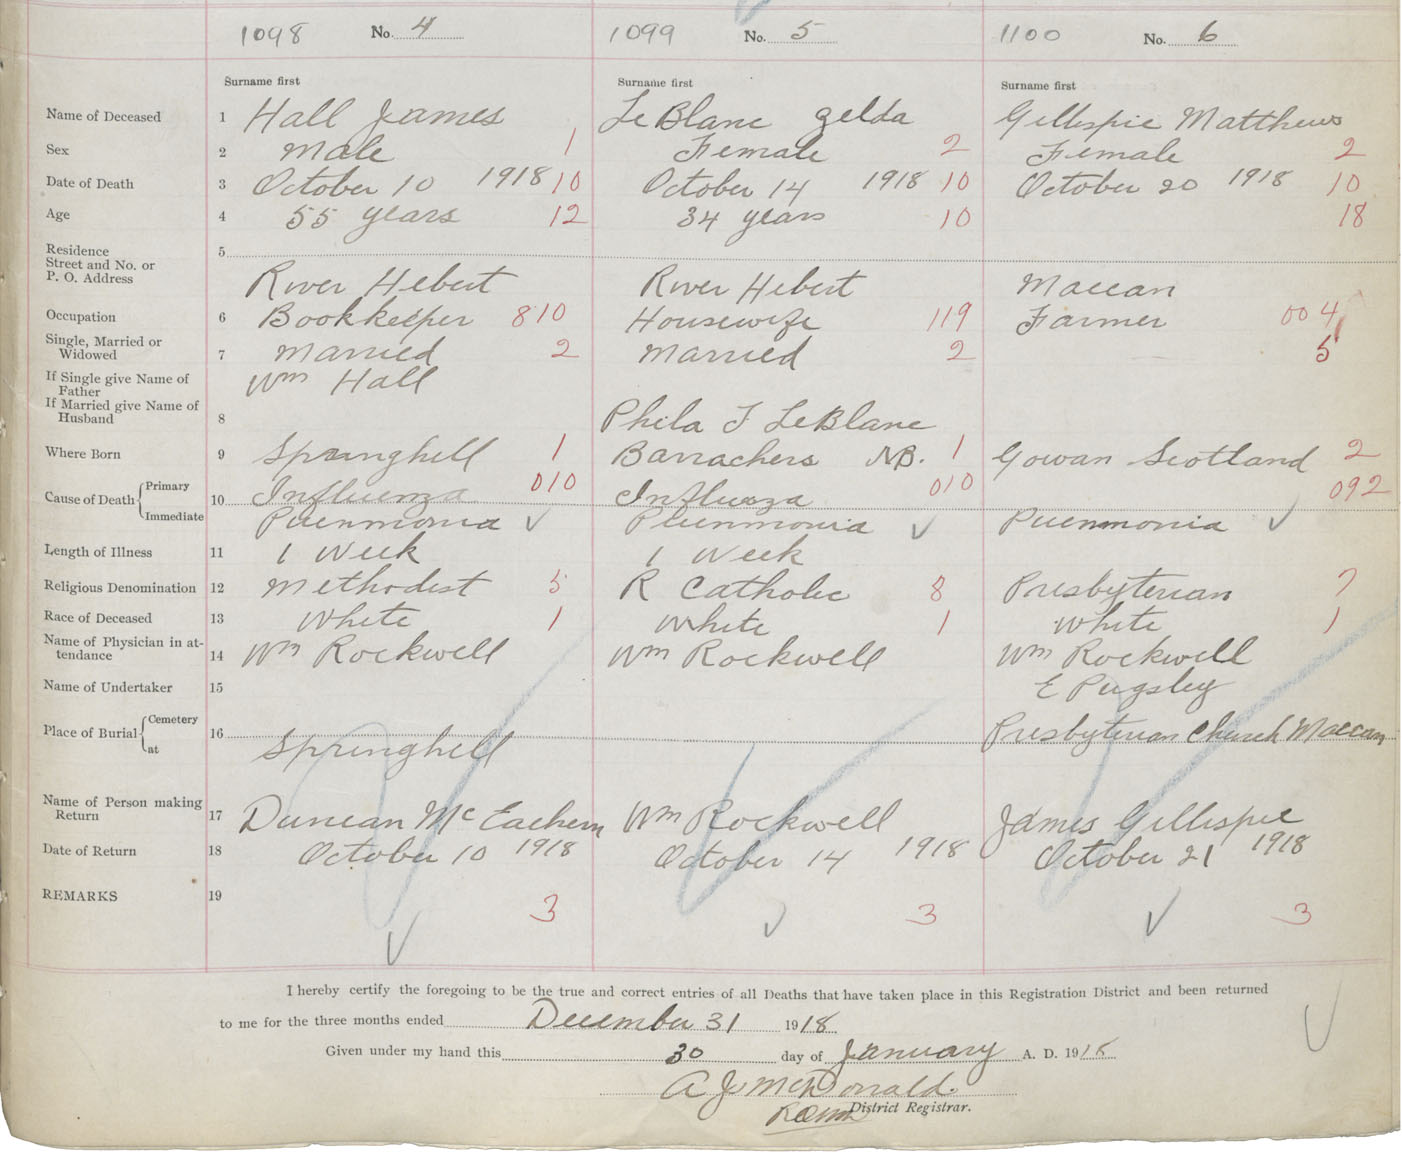 1098 No. 4 1099 No. 5 1100 No. 6
Surname first Surname first Surname first
Name of Deceased 1 Hall James LeBlanc Zelda Gillespie Matthews
Sex 2 Male 1 Female 2 Female 2
Date of Death 3 October 10 1918 10 October 14 1918 10 October 20 1918 10
Age 4 55 years 12 34 years 10 18
Residence 5
Street and No. or
P. O. Address River Hebert River Hebert Maccan
Occupation 6 Bookkeeper 810 Housewife 119 Farmer 004
Single, Married or
Widowed 7 Married 2 Married 2 5
If Single give Name of Wm Hall
Father
If Married give Name of
Husband 8 Phila F LeBlanc
Where Born 9 Springhell 1 Barrachers NB. 1 Gowan Scotland 2
Cause of Death Primary 10 Influenza 010 Influeza 010 092
Immediate Puenmonia ✓ Pluenmonia ✓ Puenmonia ✓
Length of Illness 11 1 Week 1 Week
Religious Denomination 12 Methodest 5 R Catholic 8 Presbyterian 7
Race of Deceased 13 White 1 White 1 White 1
Name of Physician in at-
tendance 14 Wm Rockwell Wm Rockwell Wm Rockwell
Name of Undertaker 15 E Pugsley
Place of Burial Cemetery 16 Presbyterian Church Maccan
at Springhell
Name of Person making
Return 17 Duncan McEachern Wm Rockwell James Gillespie
Date of Return 18 October 10 1918 October 14 1918 October 21 1918
REMARKS 19
3 ✓ 3 ✓ 3
✓
I hereby certify the foregoing to be the true and correct entries of all Deaths that have taken place in this Registration District and been returned
to me for the three months ended December 31 1918 ✓
Given under my hand this 30 day of January A. D. 1918
A J McDonald
District Registrar.